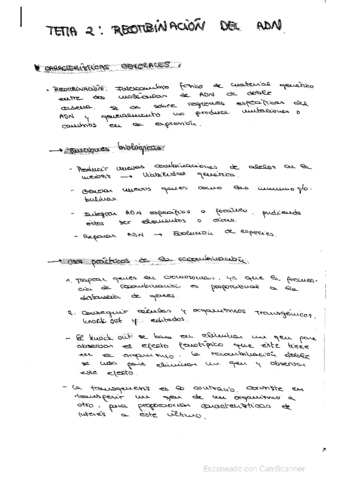 TEMA 2: RECOMBINACIÓN DEL ADN
CARACTERÍSTICAS GENERALES
• RECOMBINACIÓN: Intercambio físico de material genético
entre dos moléculas de ADN de doble
cadena. Se da sobre regiones específicas del
ADN y generalmente no produce mutaciones o
cambios en su expresión.
→ Funciones biológicas
- Producir nuevas combinaciones de alelos en la
meiosis → Variabilidad genética.
- Generar nuevos genes como las inmunoglo-
bulinas.
- Integrar ADN específico o foráneo, pudiendo
estos ser elementos o virus.
- Reparar ADN → Evolución de especies.
→ Usos prácticos de la recombinación
1. Mapear genes en cromosomas, ya que la frecuen-
cia de recombinación es proporcional a la
distancia de genes.
2. Conseguir células y organismos transgénicos,
knock out y editados.
- El knock out se basa en eliminar un gen para
observar el efecto fenotípico que este tiene
en el organismo. La recombinación doble
se usa para eliminar un gen y observar
este efecto
- La transgénesis es lo contrario, consiste en
transferir un gen de un organismo a
otro, para proporcionar características de
interés a este último.
Escaneado con CamScanner